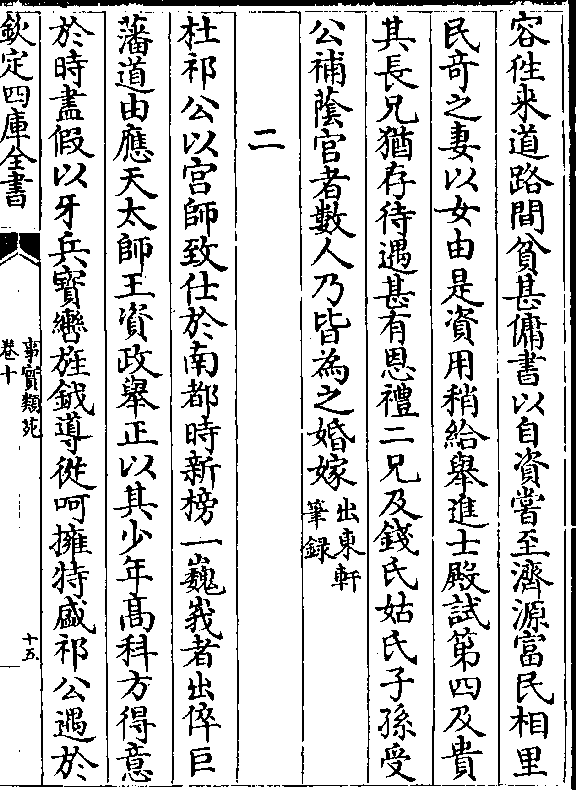 容徃来道路間貧甚傭書以自資嘗至濟源富民相里
民竒之妻以女由是資用稍給舉進士殿試第四及貴
其長兄猶存待遇甚有恩禮二兄及錢氏姑氏子孫受
公補䕃官者數人乃皆為之婚嫁出東軒
筆録
二
杜祁公以宫師致仕於南都時新榜一巍峩者出倅巨
藩道由應天太師王資政舉正以其少年髙科方得意
於時盡假以牙兵寳轡旌鉞導從呵擁特盛祁公遇於
欽定四庫全書
事實類苑
卷十
十五